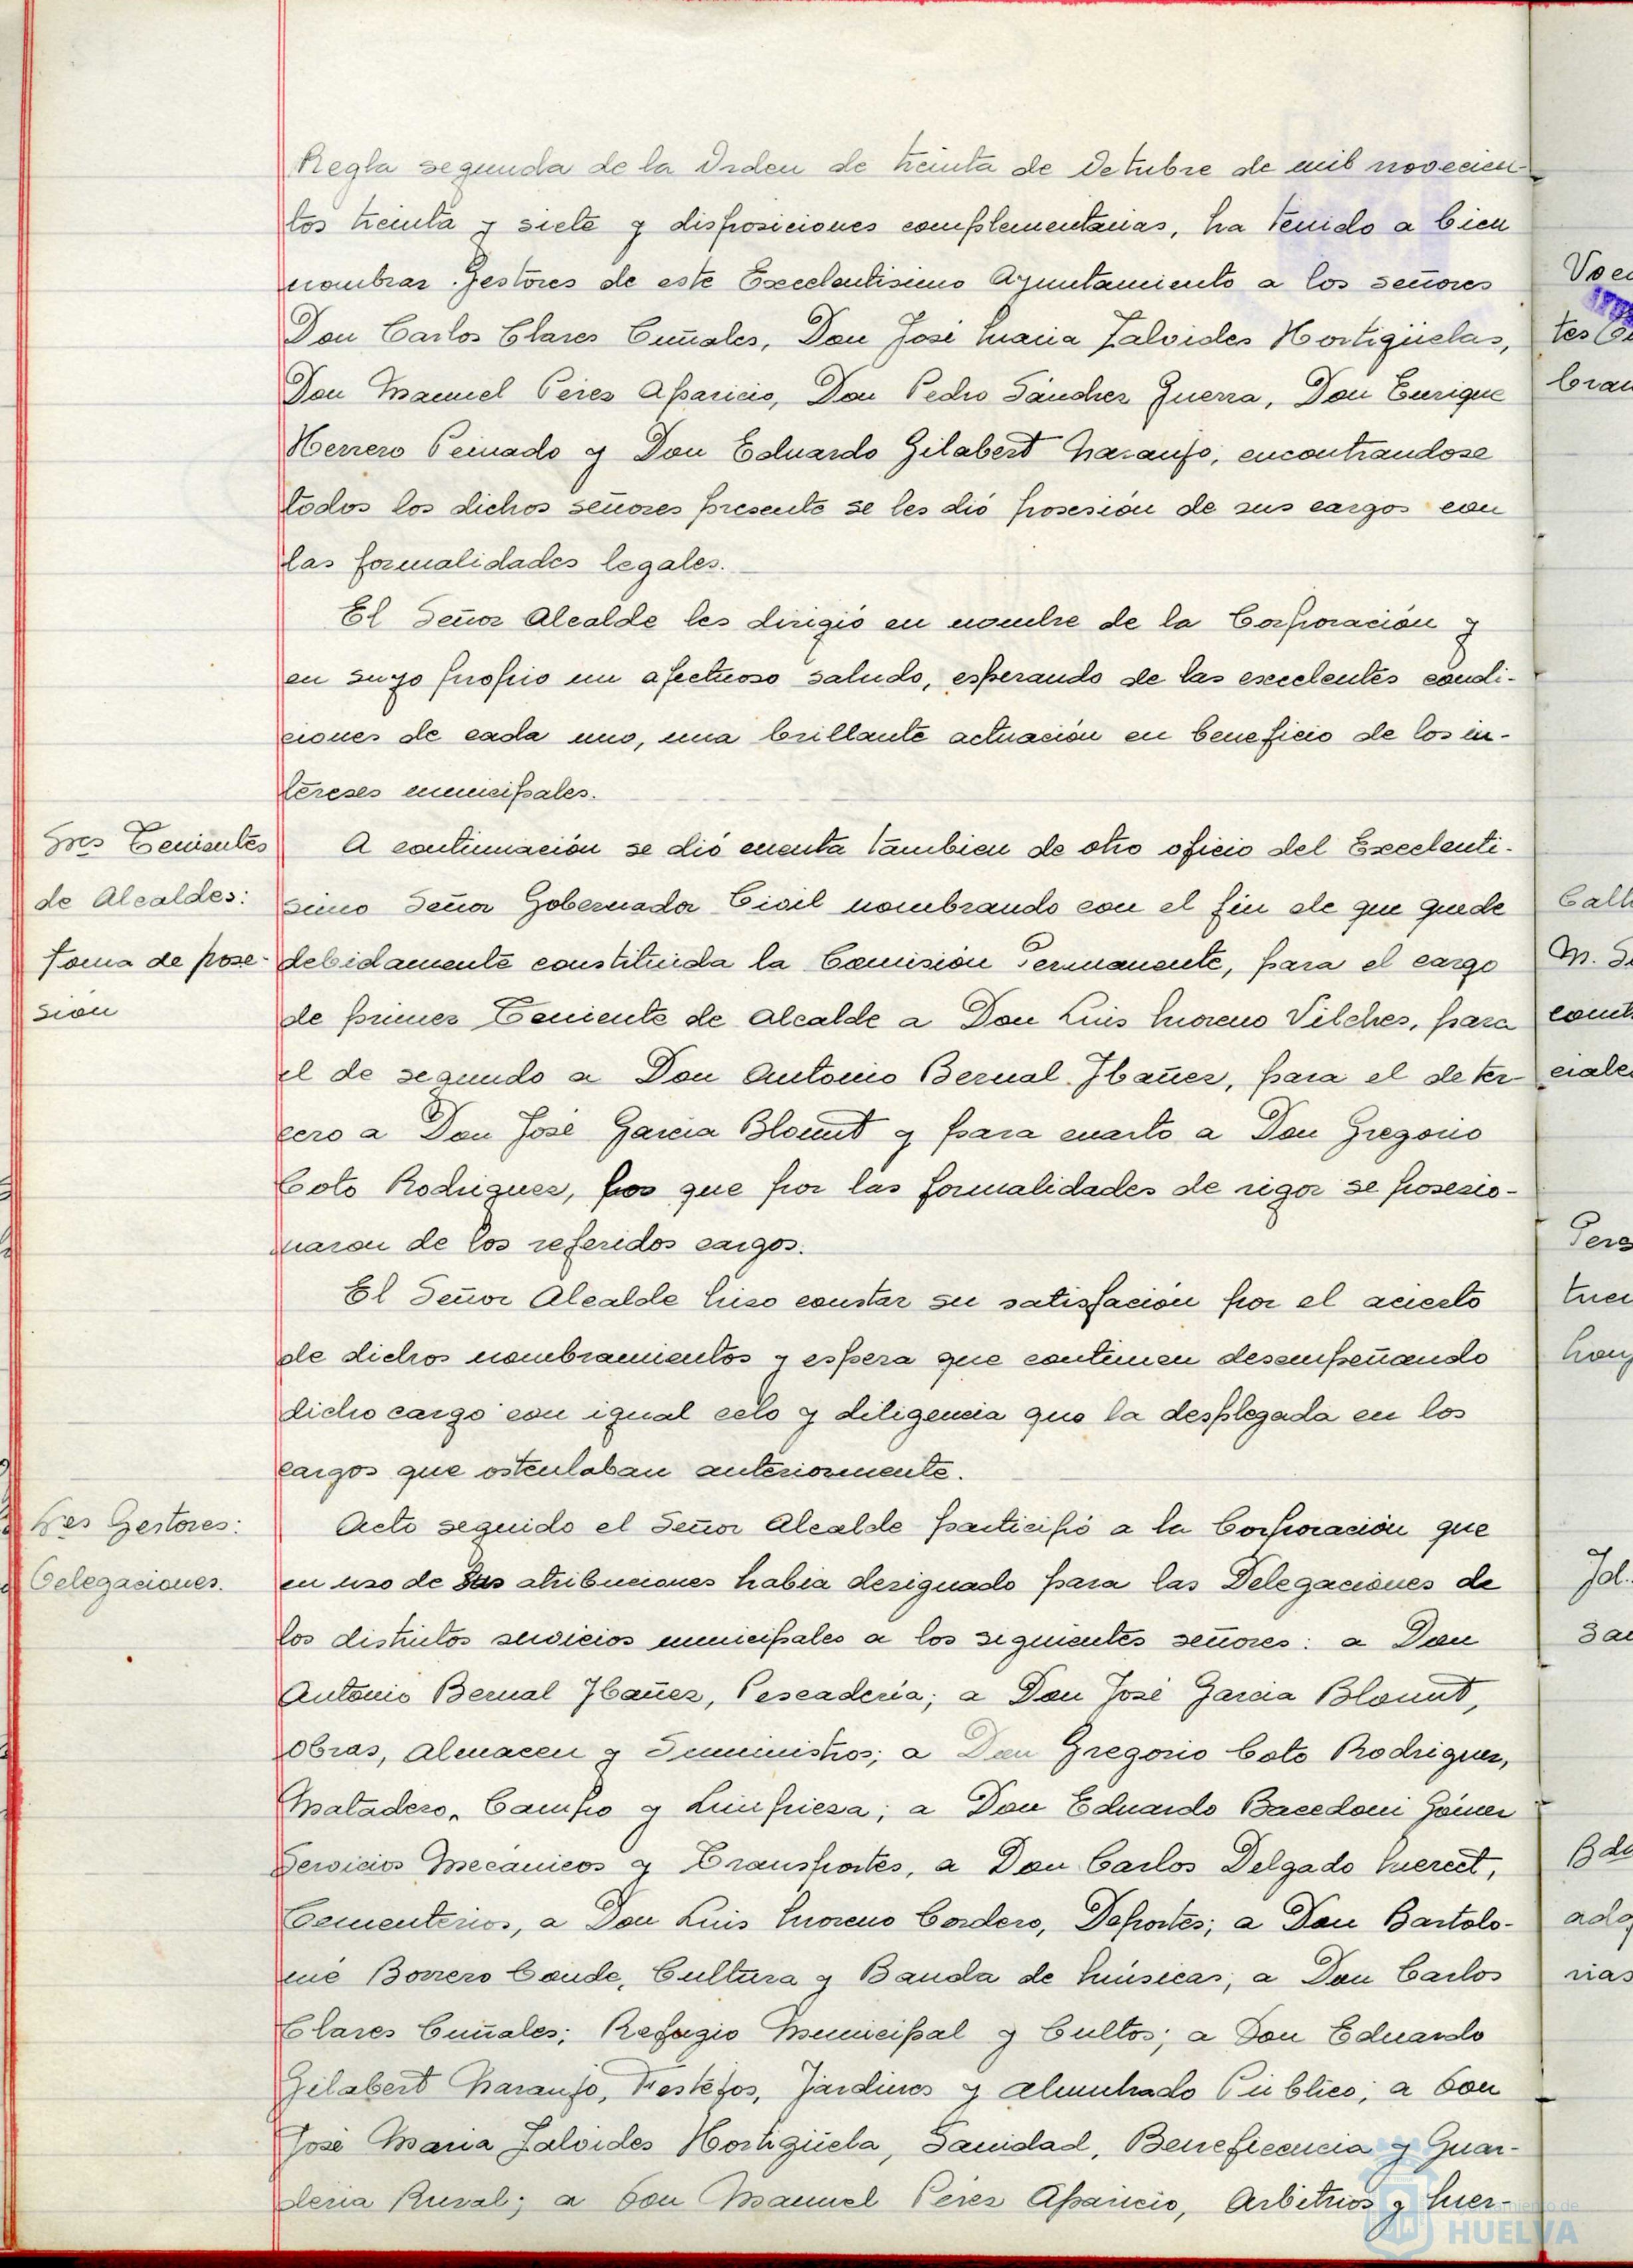 Regla segunda de la Orden de treinta de Octubre de mil novecien-
tos treinta y siete y disposiciones complementarias, ha tenido a bien
nombrar Gestores de este Excelentisimo Ayuntamiento a los señores
Don Carlos Clares Cuñales, Don José Maria Zalvides Hortigüelas,
Don Manuel Pérez Aparicio, Don Pedro Sánchez Guerra, Don Enrique
Herrero Peinado y Don Eduardo Gilabert Naranjo, encontrandose
todos los dichos señores presente se les dió posesión de sus cargos con
las formalidades legales.
El Señor Alcalde les dirigió en nombre de la Corporación y
en suyo propio un afectuoso saludo, esperando de las excelentes condi-
ciones de cada uno, una brillante actuación en beneficio de los in-
tereses municipales.
Sres Tenientes
de Alcaldes:
toma de pose-
sión
A continuación se dió cuenta tambien de otro oficio del Excelenti-
simo Señor Gobernador Civil nombrando con el fin de que quede
debidamente constituida la Comisión Permanente, para el cargo
de primer Teniente de Alcalde a Don Luis Moreno Vilches, para
el de segundo a Don Antonio Bernal Ibañez, para el de ter-
cero a Don José Garcia Blount y para cuarto a Don Gregorio
Coto Rodriguez, los que por las formalidades de rigor se posesio-
naron de los referidos cargos.
El Señor Alcalde hizo constar su satisfación por el acierto
de dichos nombramientos y espera que continuen desempeñando
dicho cargo con igual celo y diligencia que la desplegada en los
cargos que ostentaban anteriormente.
Sres Gestores:
Delegaciones.
Acto seguido el Señor Alcalde participó a la Corporación que
en uso de sus atribuciones habia designado para las Delegaciones de
los distintos servicios municipales a los siguientes señores: a Don
Antonio Bernal Ibañez, Pescaderia; a Don José Garcia Blount,
Obras, Almacen y Suministros; a Don Gregorio Coto Rodriguez,
Matadero, Campo y Limpieza; a Don Eduardo Bacedoni Gómez
Servicios Mecánicos y Transportes, a Don Carlos Delgado
Cementerios, a Don Luis Moreno Cordero, Deportes; a Don Bartolo-
mé Borrero Conde, Cultura y Banda de Músicas; a Don Carlos
Clares Cuñales; Refugio Municipal y Cultos; a Don Eduardo
Gilabert Naranjo, Festejos, Jardines y Alumbrado Público; a Don
José Maria Zalvides Hortigüela, Sanidad, Beneficencia y Guar-
deria Rural; a Don Manuel Pérez Aparicio, Arbitrios y Mer-
HUELVA